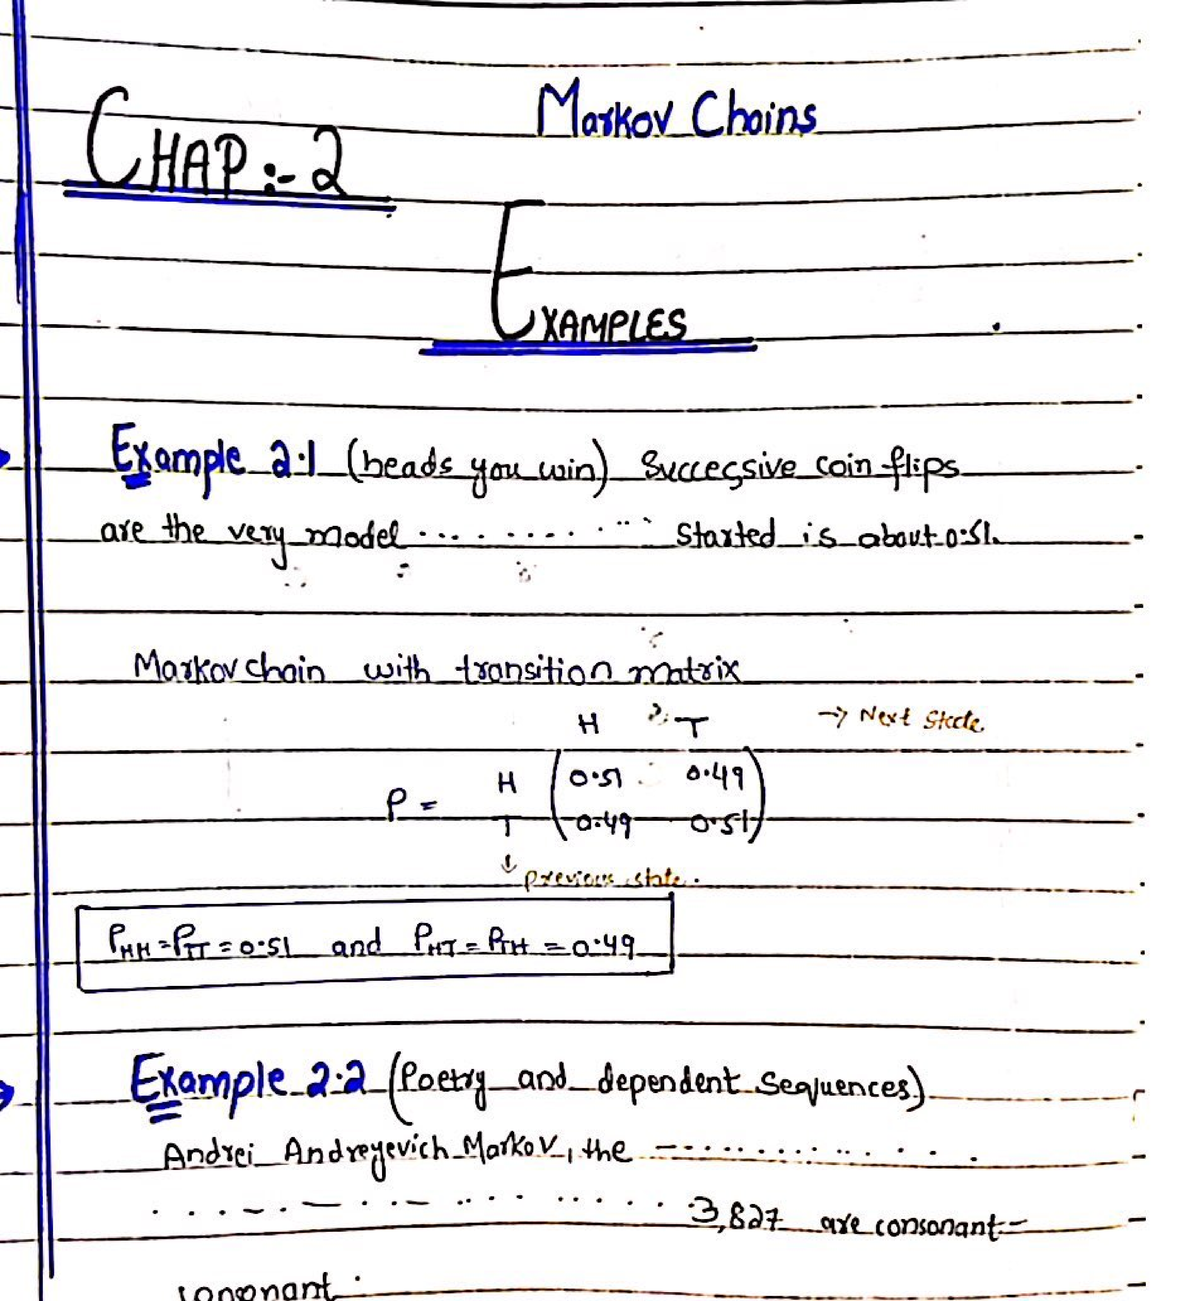 Markov Chains
CHAP:- 2
EXAMPLES
Example 2.1 (heads you win) Successive coin flips
are the very model ............ Started is about 0.51.
Markov chain with transition matrix
H T → Next State
H 0.51 0.49
P =
T 0.49 0.51
↓ previous state.
P_HH = P_TT = 0.51 and P_HT = P_TH = 0.49
Example 2.2 (Poetry and dependent Sequences)
Andrei Andreyevich Markov, the ............
............ 3,827 are consonant-
consonant.